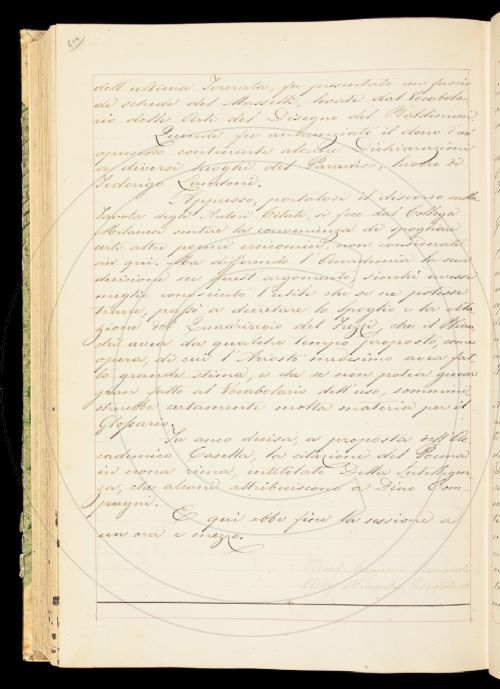 dell'ultima Tornata, fu presentato un passio
di schede del Massetti, levati dal Vocabola-
rio delle Arti del Disegno del Baldinucci.
Quindi fu annunziato il dono d'un
opuscolo contenente alcune Dichiarazioni
a diversi luoghi del Paradiso, lavoro di
Federigo
Appresso, portatosi il discorso sulla
Tavola degli Autori Citati, si fece dal Collega
Milanesi sentire la convenienza di spogliare
certi altri poemi eroicomici, non considerati
sin qui. Ma differendo l'Accademia la sua
decisione su quest'argomento, sinchè avesse
meglio conosciuto l'utile che se ne potesse
trarre, passò a decretare lo spoglio e la cita-
zione del Quadriregio del Frezzi, che il Bian-
chi avea da qualche tempo proposto, come
opera, di cui l'Ariosto medesimo avea fat-
to grande stima, e che se non potea giovar
gran fatto al Vocabolario dell'uso, sommini-
strerebbe certamente molta materia per il
Glossario.
Fu anco decisa, a proposta dell'Ac-
cademico Casella, la citazione del Poema
in nona rima, intitolato Della Intelligen-
za, che alcuni attribuiscono a Dino Com-
pagni.
E qui ebbe fine la sessione a
un'ora e mezzo.